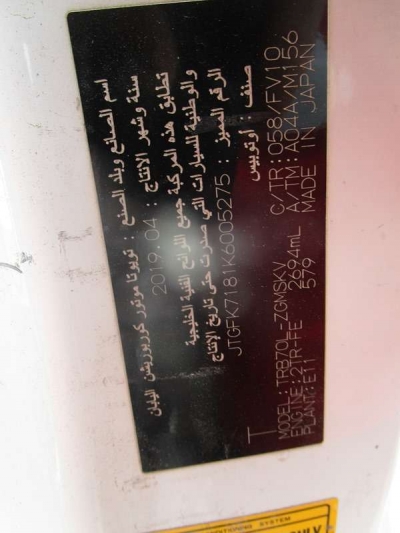 اسم الصانع وبلد الصنع : تويوتا موتور كوربوريشن اليابان
سنة وشهر الانتاج : 2019.04
تطابق هذه المركبة جميع اللوائح الفنية الخليجية
والوطنية للسيارات التي صدرت حتى تاريخ الإنتاج
الرقم المميز : JTGFK7181K6005275
صنف : اوتوبيس
MODEL:TRB70L-ZGMSKV C/TR:058/FV10
ENGINE:2TR-FE 2694mL A/TM:A04A/M156
PLANT:E11 579 MADE IN JAPAN
SYSTEM
ONLY